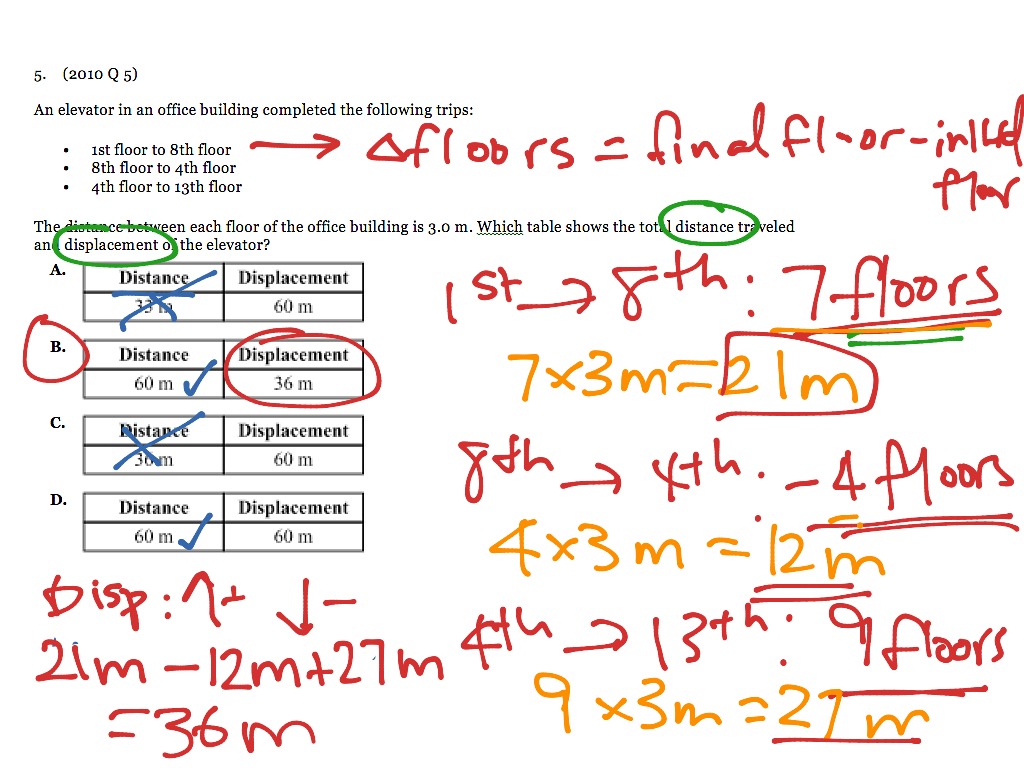 5. (2010 Q 5)
An elevator in an office building completed the following trips:
• 1st floor to 8th floor
• 8th floor to 4th floor
• 4th floor to 13th floor
→ Δfloors = final floor - initial
floor
The distance between each floor of the office building is 3.0 m. Which table shows the total distance traveled
and displacement of the elevator?
A.
Distance Displacement
33 m 60 m
B.
Distance Displacement
60 m ✓ 36 m
C.
Distance Displacement
36 m 60 m
D.
Distance Displacement
60 m ✓ 60 m
1st → 8th : 7 floors
7 × 3 m = 21 m
8th → 4th . - 4 floors
4 × 3 m = 12 m
4th → 13th : 9 floors
9 × 3 m = 27 m
Disp : ↑ + ↓ -
21m - 12m + 27m
= 36 m